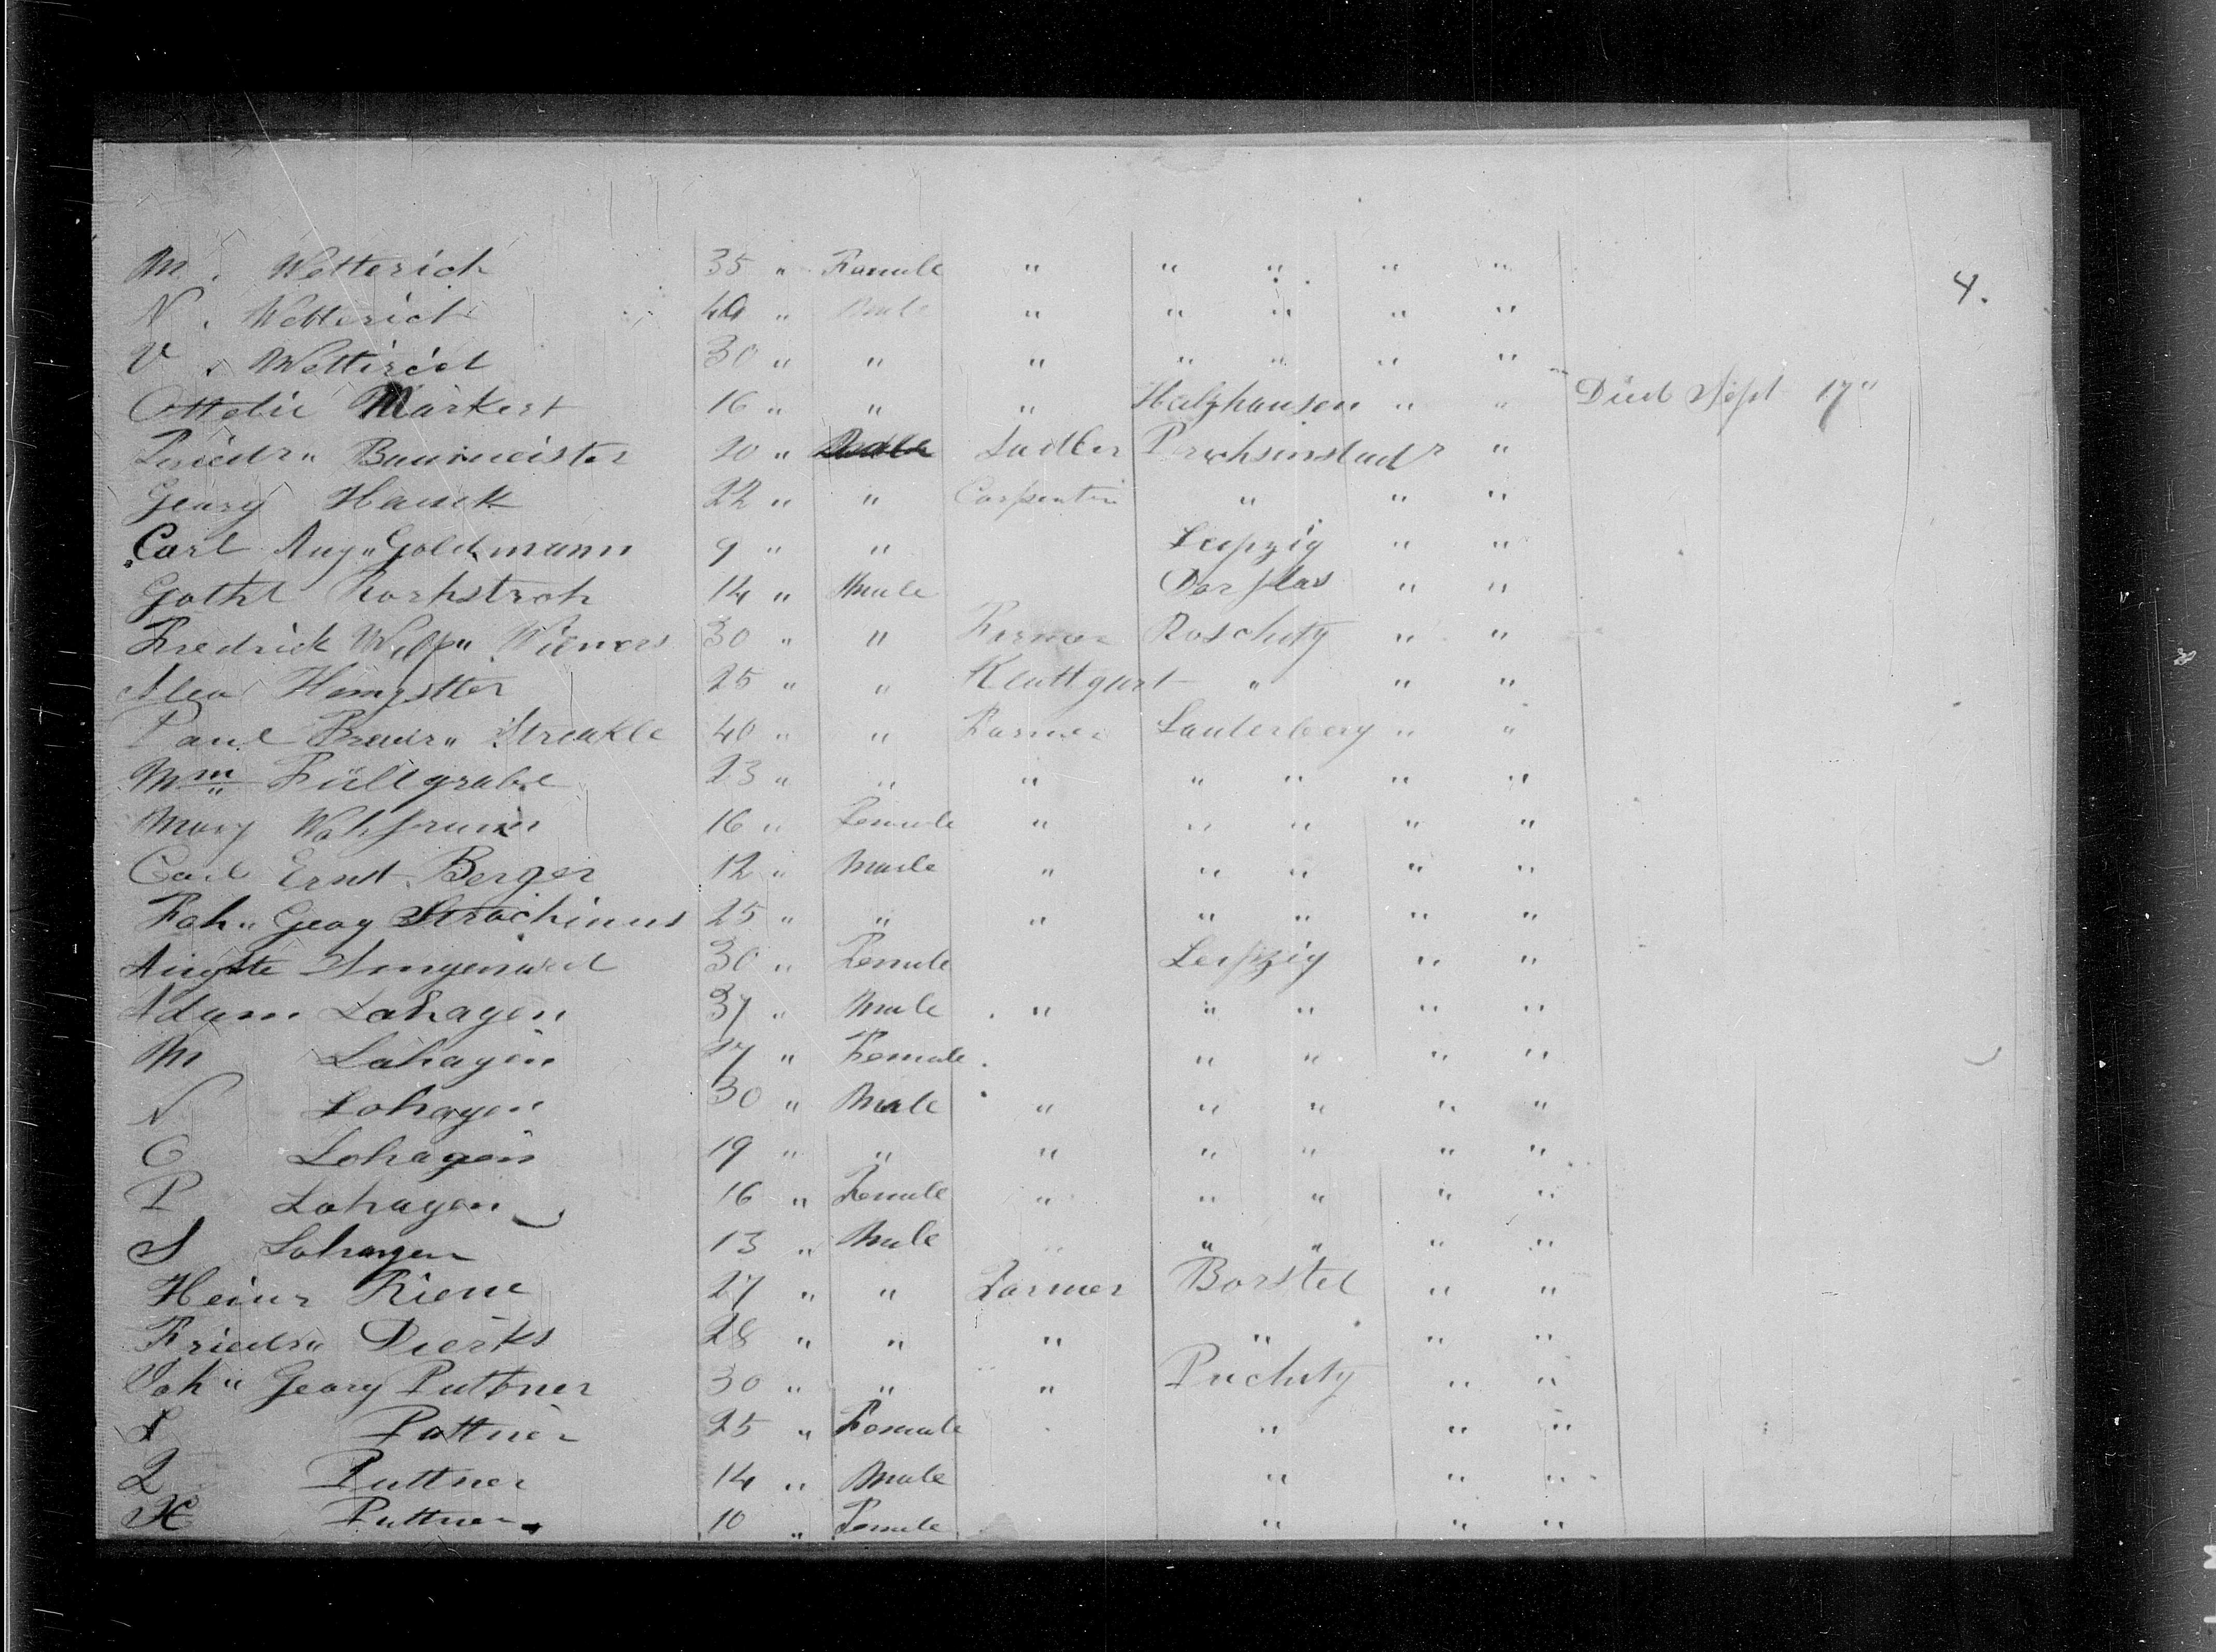 M. Wetterich 35 " Female " " " " "
4.
N. Wetterich 40 " Male " " " " "
V. Wetterich 30 " " " " " " "
Ottelie Markert 16 " " " Halzhausen " " Died Sept 17"
Friedr" Baumeister 20 " Sadler "
Georg Hauck 22 " " Carpenter " " "
Carl Aug" Goldmann 9 " " Leipzig " "
Gothl 14 " Male Dorflas " "
Fredrick Wilh" Wieners 30 " " Farmer Roschuty " "
Alex 25 " " " " "
Paul Streakle 40 " " Farmer Lauterberg " "
Wm Füllgrabe 23 " " " " " " "
Mary 16 " Female " " " " "
Carl Ernst Berger 12 " Male " " " " "
Joh" Georg Strachinus 25 " " " " " " "
Auguste 30 " Female Leipzig " "
Adam Lohagen 37 " Male " " " " "
M Lohagen 17 " Female " " " "
N Lohagen 30 " Male " " " " "
O Lohagen 19 " " " " " " "
P Lohagen 16 " Female " " " " "
S Lohagen 13 " Male " " " "
Heinr Riene 27 " " Farmer Borstel " "
Friedr" Dierks 28 " " " " " "
Joh" Georg Puttner 30 " " " Puchuty " "
L Puttner 25 " Female " " "
Q Puttner 14 " Male " " "
K Puttner 10 " Female " " "